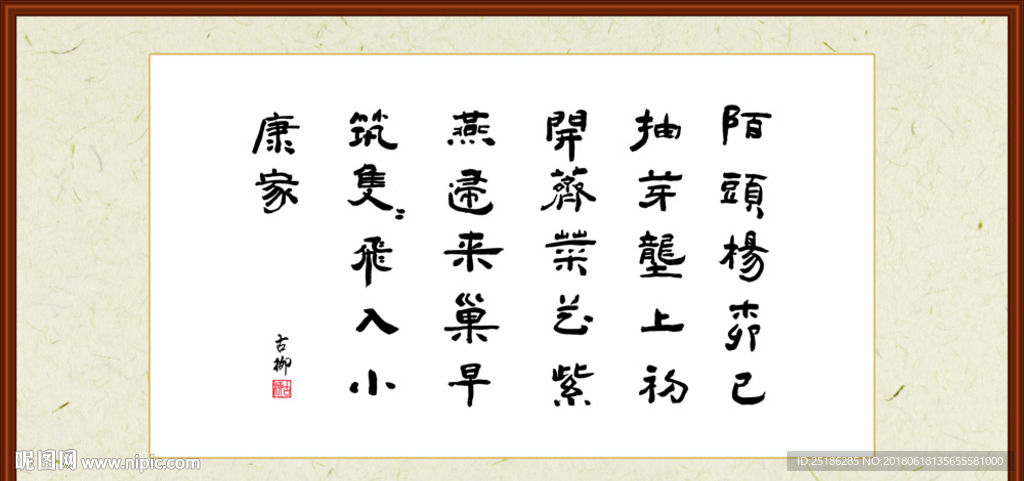 陌頭楊桺已
抽芽壟上初
開薺菜花紫
燕歸来巢早
筑隻〻飛入小
康家
古柳
昵图网 www.nipic.com
ID:25186285 NO:20180618135655581000